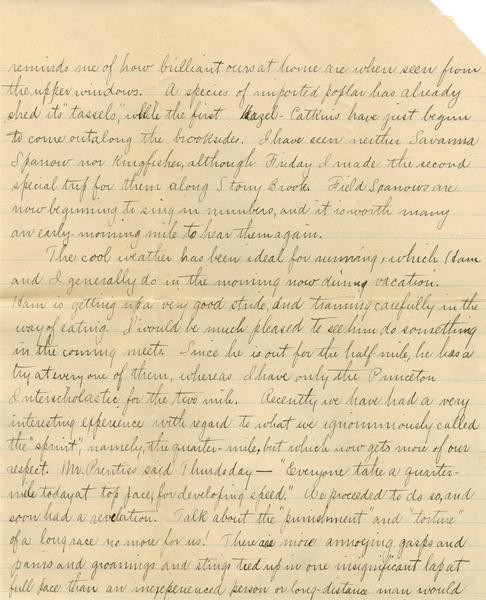 reminds me of how brilliant ours at home are when seen from
the upper windows. A species of imported poplar has already
shed its "tassels," while the first Hazel-Catkins have just begun
to come out along the brooksides. I have seen neither Savanna
Sparrow nor Kingfisher, although Friday I made the second
special trip for them along Stony Brook. Field Sparrows are
now beginning to sing in numbers, and it is worth many
an early-morning mile to hear them again.
The cool weather has been ideal for running, which Ham
and I generally do in the morning now during vacation.
Ham is getting up a very good stride, and training carefully in the
way of eating. I'would be much pleased to see him do something
in the coming meets. Since he is out for the half-mile, he has a
try at every one of them, whereas I have only the Princeton
Interscholastic for the two mile. Recently we have had a very
interesting experience with regard to what we ignominiously called
the "sprint", namely, the quarter-mile, but which now gets more of our
respect. Mr. Prentiss said Thursday — "Everyone take a quarter-
mile today at top pace, for developing speed." We proceeded to do so, and
soon had a revelation. Talk about the "punishment" and "torture"
of a long race no more for us! There are more annoying gasps and
pains and groanings and stings tied up in one insignificant lap at
full pace than an inexperienced person or long-distance man would